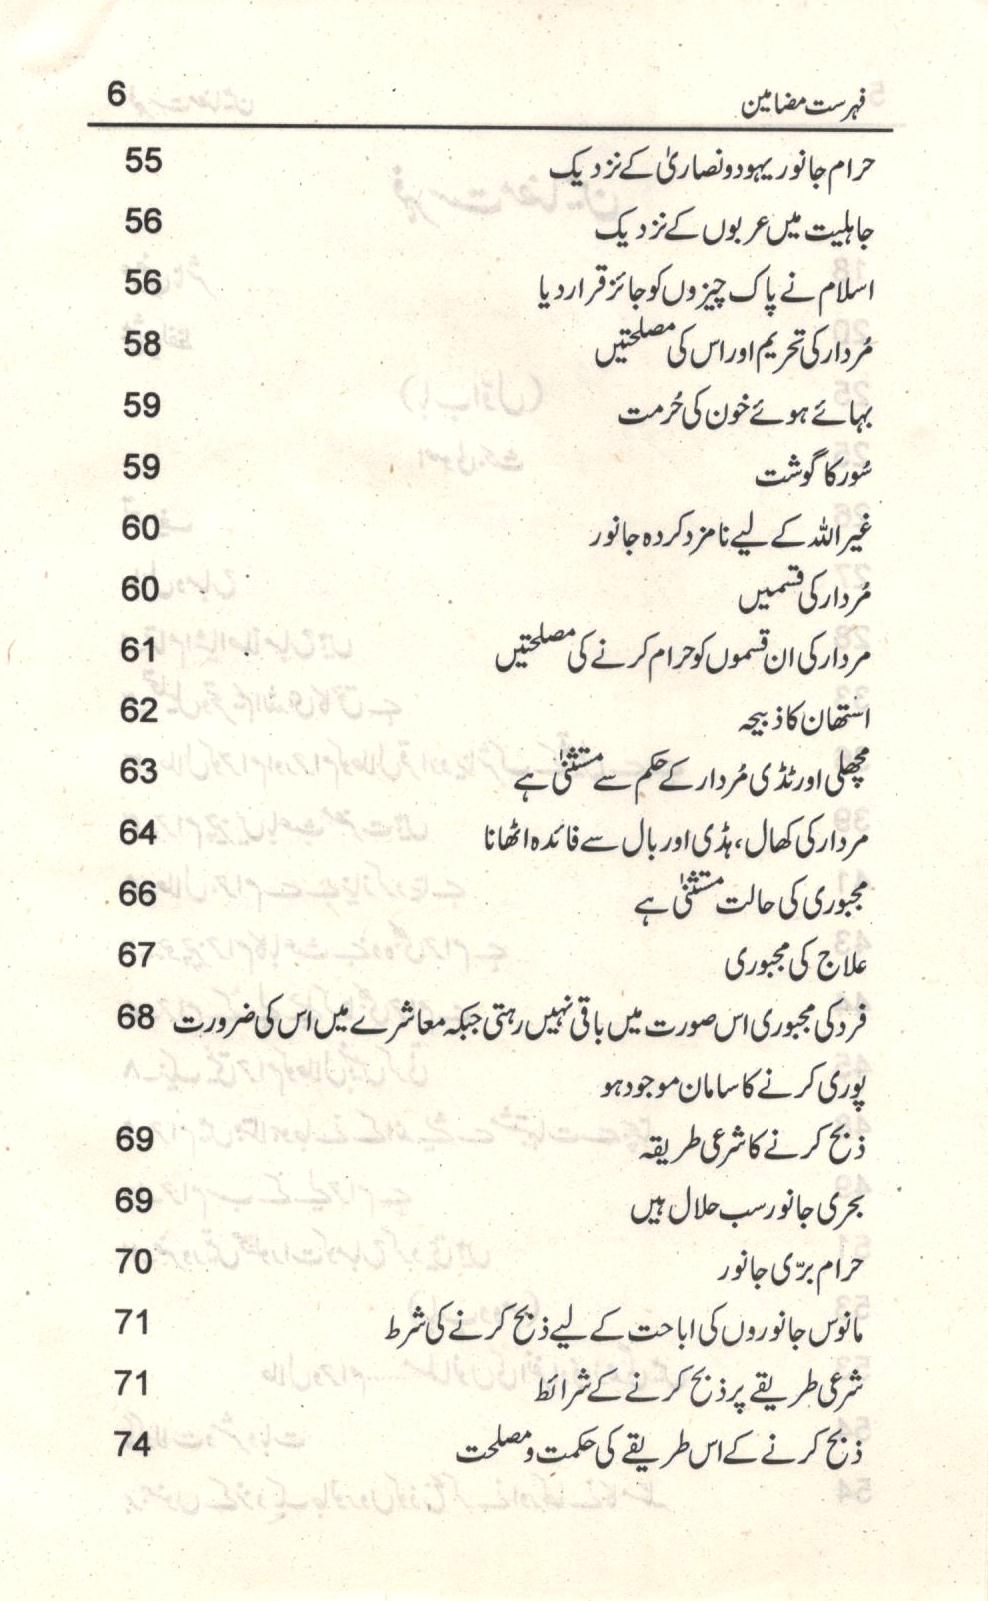 فہرست مضامین 6
حرام جانور یہود و نصاریٰ کے نزدیک 55
جاہلیت میں عربوں کے نزدیک 56
اسلام نے پاک چیزوں کو جائز قرار دیا 56
مُردار کی تحریم اور اس کی مصلحتیں 58
بہائے ہوئے خون کی حُرمت 59
سُور کا گوشت 59
غیر اللہ کے لیے نامزد کردہ جانور 60
مُردار کی قسمیں 60
مردار کی ان قسموں کو حرام کرنے کی مصلحتیں 61
استھان کا ذبیحہ 62
مچھلی اور ٹڈی مُردار کے حکم سے مستثنیٰ ہے 63
مردار کی کھال، ہڈی اور بال سے فائدہ اٹھانا 64
مجبوری کی حالت مستثنیٰ ہے 66
علاج کی مجبوری 67
فرد کی مجبوری اس صورت میں باقی نہیں رہتی جبکہ معاشرے میں اس کی ضرورت 68
پوری کرنے کا سامان موجود ہو
ذبح کرنے کا شرعی طریقہ 69
بحری جانور سب حلال ہیں 69
حرام برّی جانور 70
مانوس جانوروں کی اباحت کے لیے ذبح کرنے کی شرط 71
شرعی طریقے پر ذبح کرنے کے شرائط 71
ذبح کرنے کے اس طریقے کی حکمت و مصلحت 74